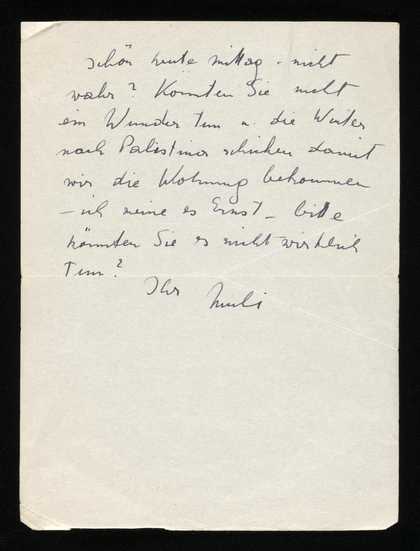 schön heute mittag - nicht
wahr? Könnten Sie nicht
ein Wunder tun u. die Winter
nach Palästina schicken damit
wir die Wohnung bekommen
- ich meine es Ernst - bitte
könnten Sie es nicht wirklich
tun?
Ihr